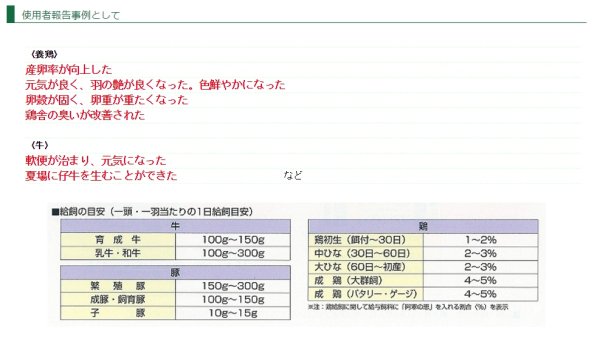 使用者報告事例として
〈養鶏〉
産卵率が向上した
元気が良く、羽の艶が良くなった。色鮮やかになった
卵殻が固く、卵重が重たくなった
鶏舎の臭いが改善された
〈牛〉
軟便が治まり、元気になった
夏場に仔牛を生むことができた など
■給飼の目安（一頭・一羽当たりの1日給飼目安）
牛
育成牛 100g～150g
乳牛・和牛 100g～300g
豚
繁殖豚 150g～300g
成豚・飼育豚 100g～150g
子豚 10g～15g
鶏
鶏初生（餌付～30日） 1～2%
中ひな（30日～60日） 2～3%
大ひな（60日～初産） 2～3%
成鶏（大群飼） 4～5%
成鶏（バタリー・ゲージ） 4～5%
※注：鶏給飼に関して給与飼料に「阿蘇の恵」を入れる割合（%）を表示